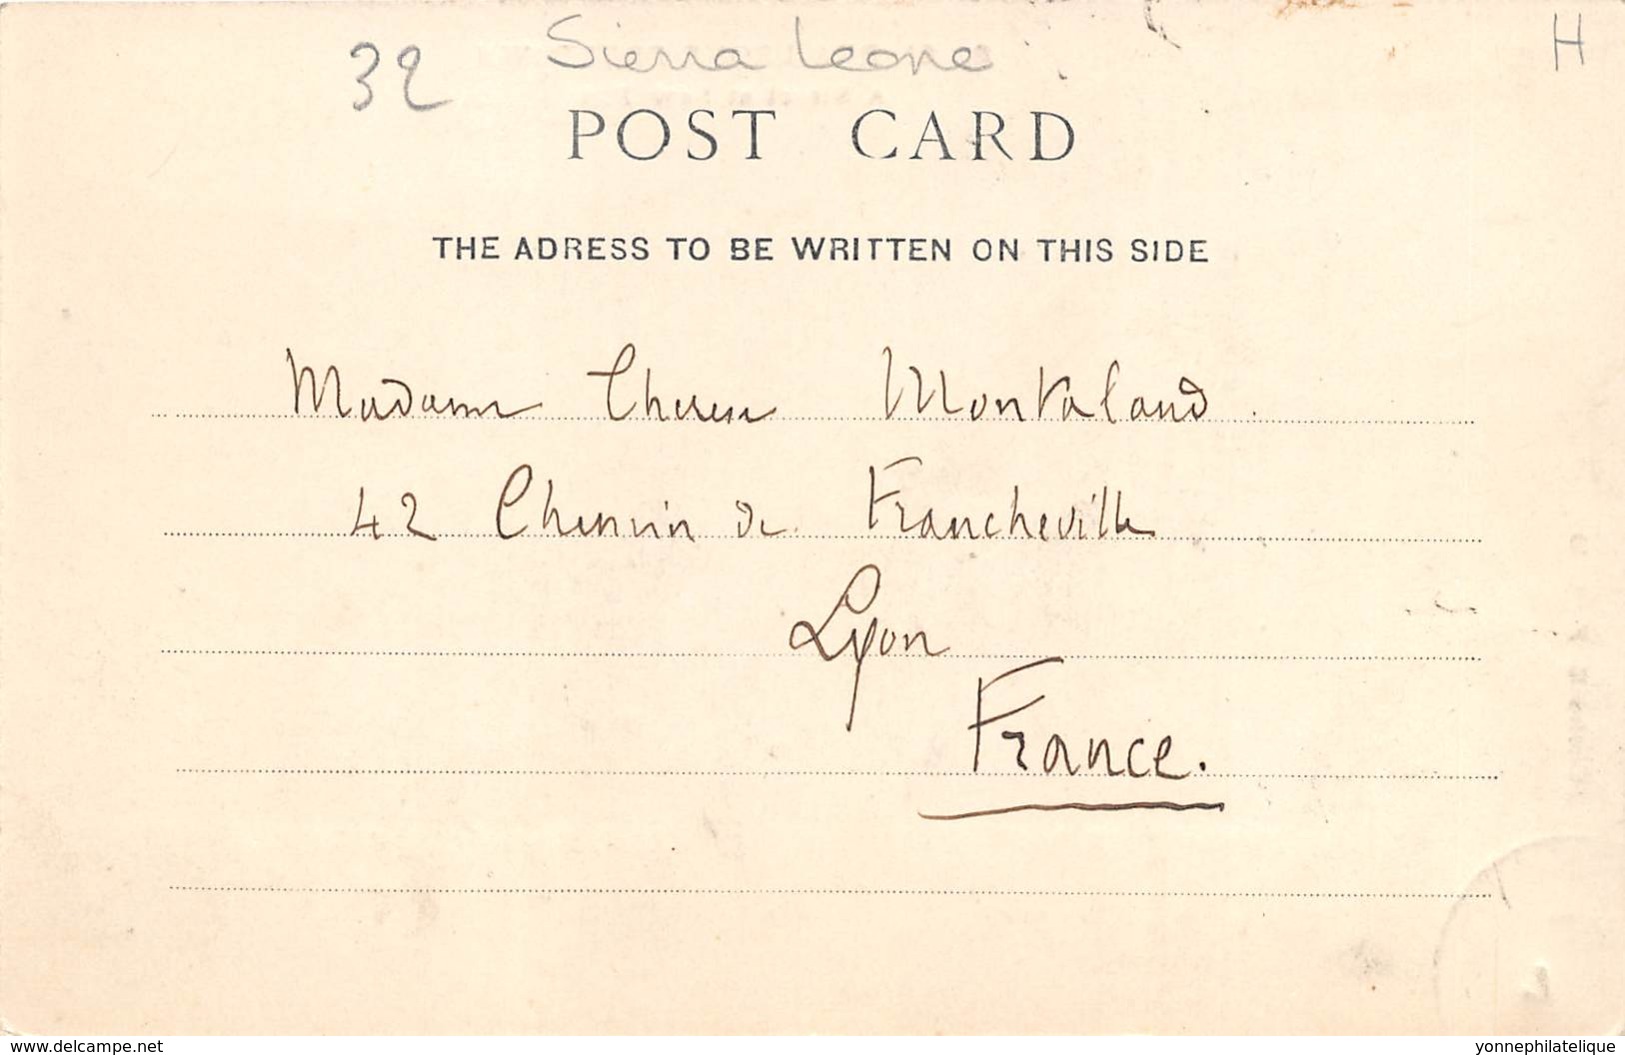 32 Sierra Leone H
POST CARD
THE ADRESS TO BE WRITTEN ON THIS SIDE
Madame Therese Montaland.
42 Chemin de Francheville
Lyon
France.
www.delcampe.net yonnephilatelique